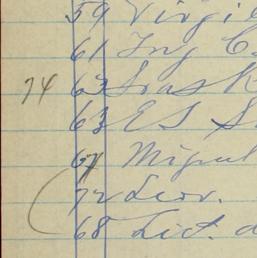 59 Virgi
61 Ing C.
74 63 Sras K
63 E S S
67 Miguel
72 Leor.
68 Lic. a